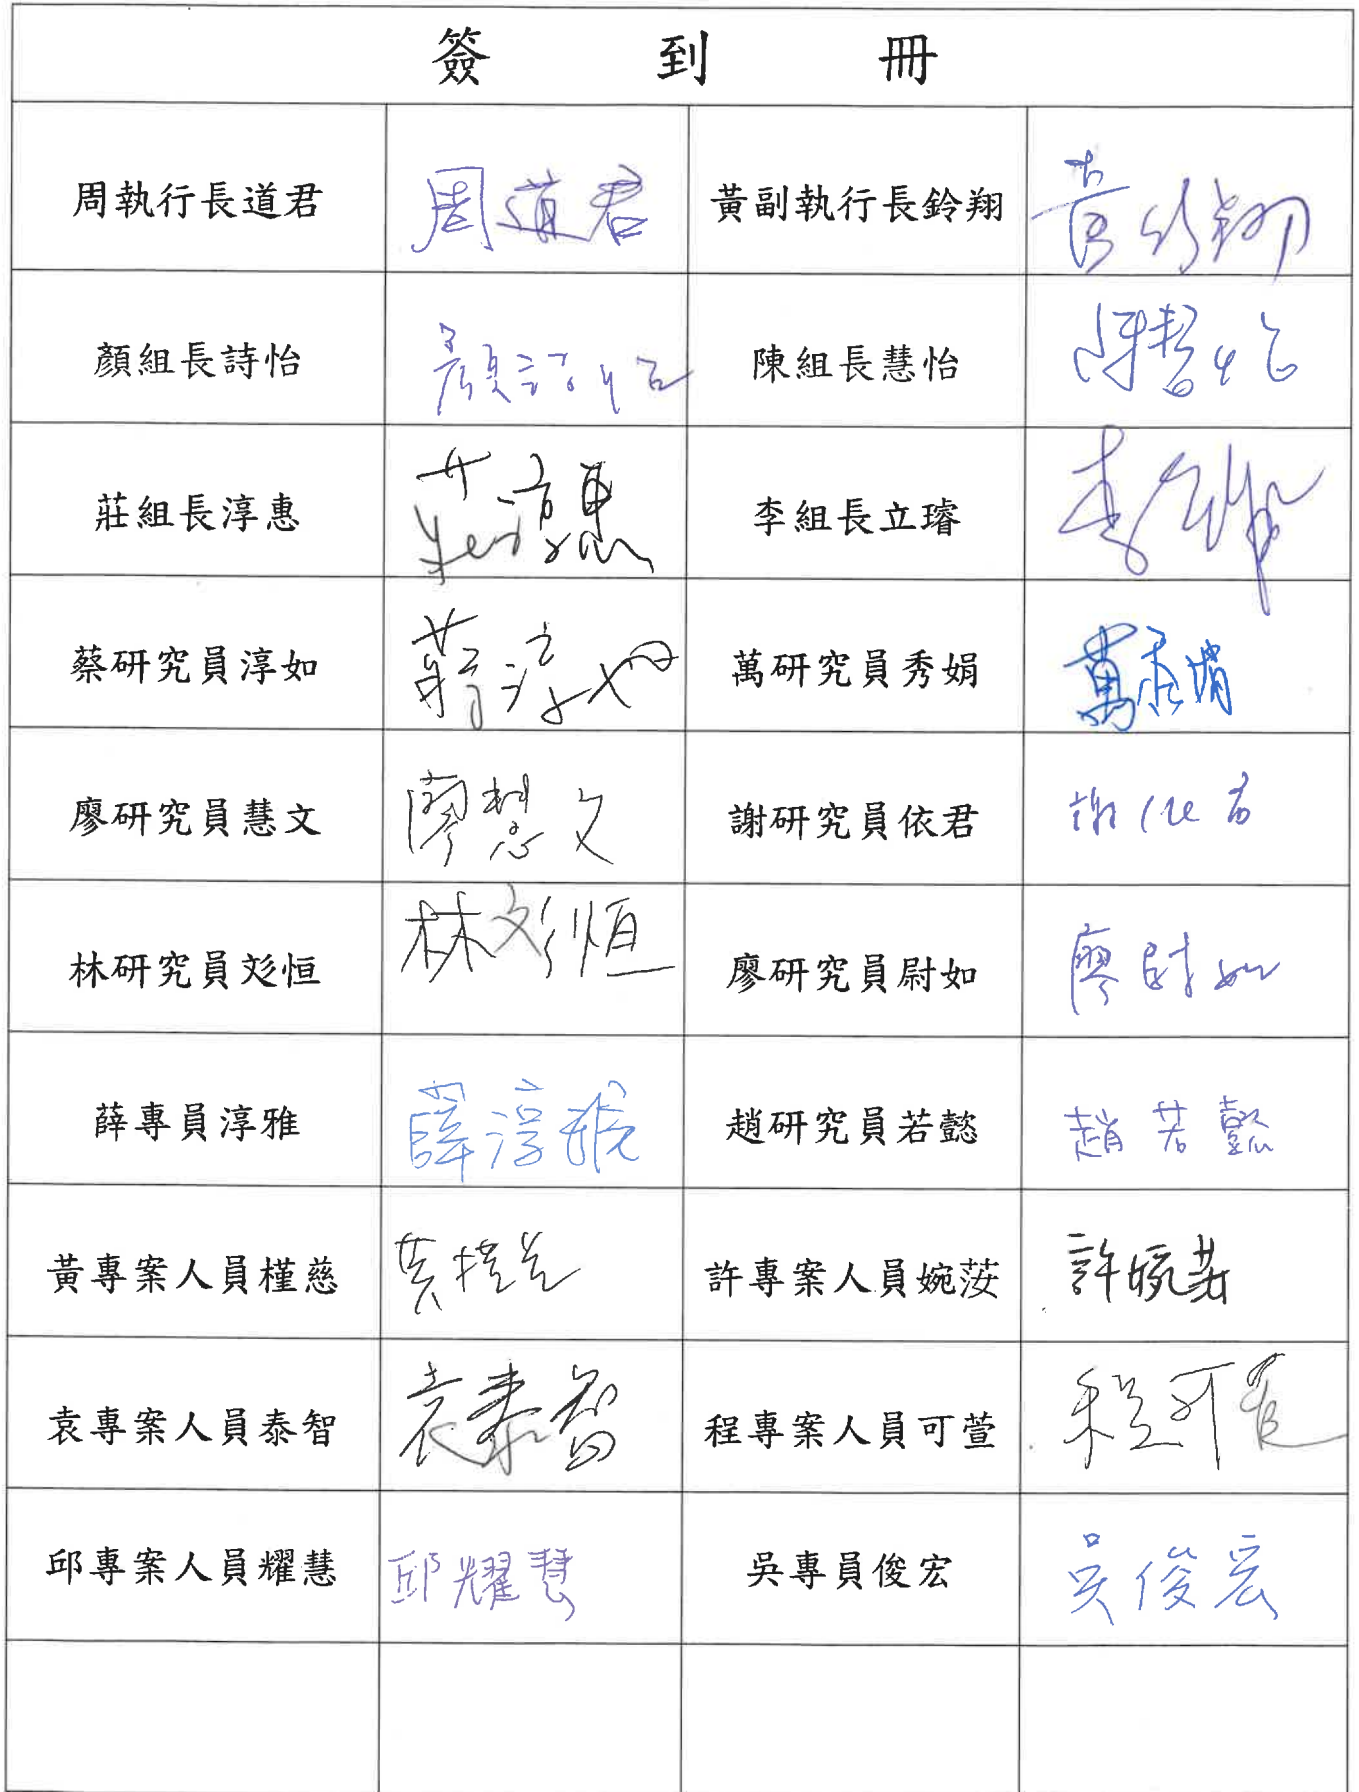 簽到冊
周執行長道君 周道君 黃副執行長鈴翔 黃鈴翔
顏組長詩怡 顏詩怡 陳組長慧怡 陳慧怡
莊組長淳惠 莊淳惠 李組長立璿 李立璿
蔡研究員淳如 蔡淳如 萬研究員秀娟 萬秀娟
廖研究員慧文 廖慧文 謝研究員依君 謝依君
林研究員彣恒 林彣恒 廖研究員尉如 廖尉如
薛專員淳雅 薛淳雅 趙研究員若懿 趙若懿
黃專案人員槿慈 黃槿慈 許專案人員婉菨 許婉菨
袁專案人員泰智 袁泰智 程專案人員可萱 程可萱
邱專案人員耀慧 邱耀慧 吳專員俊宏 吳俊宏